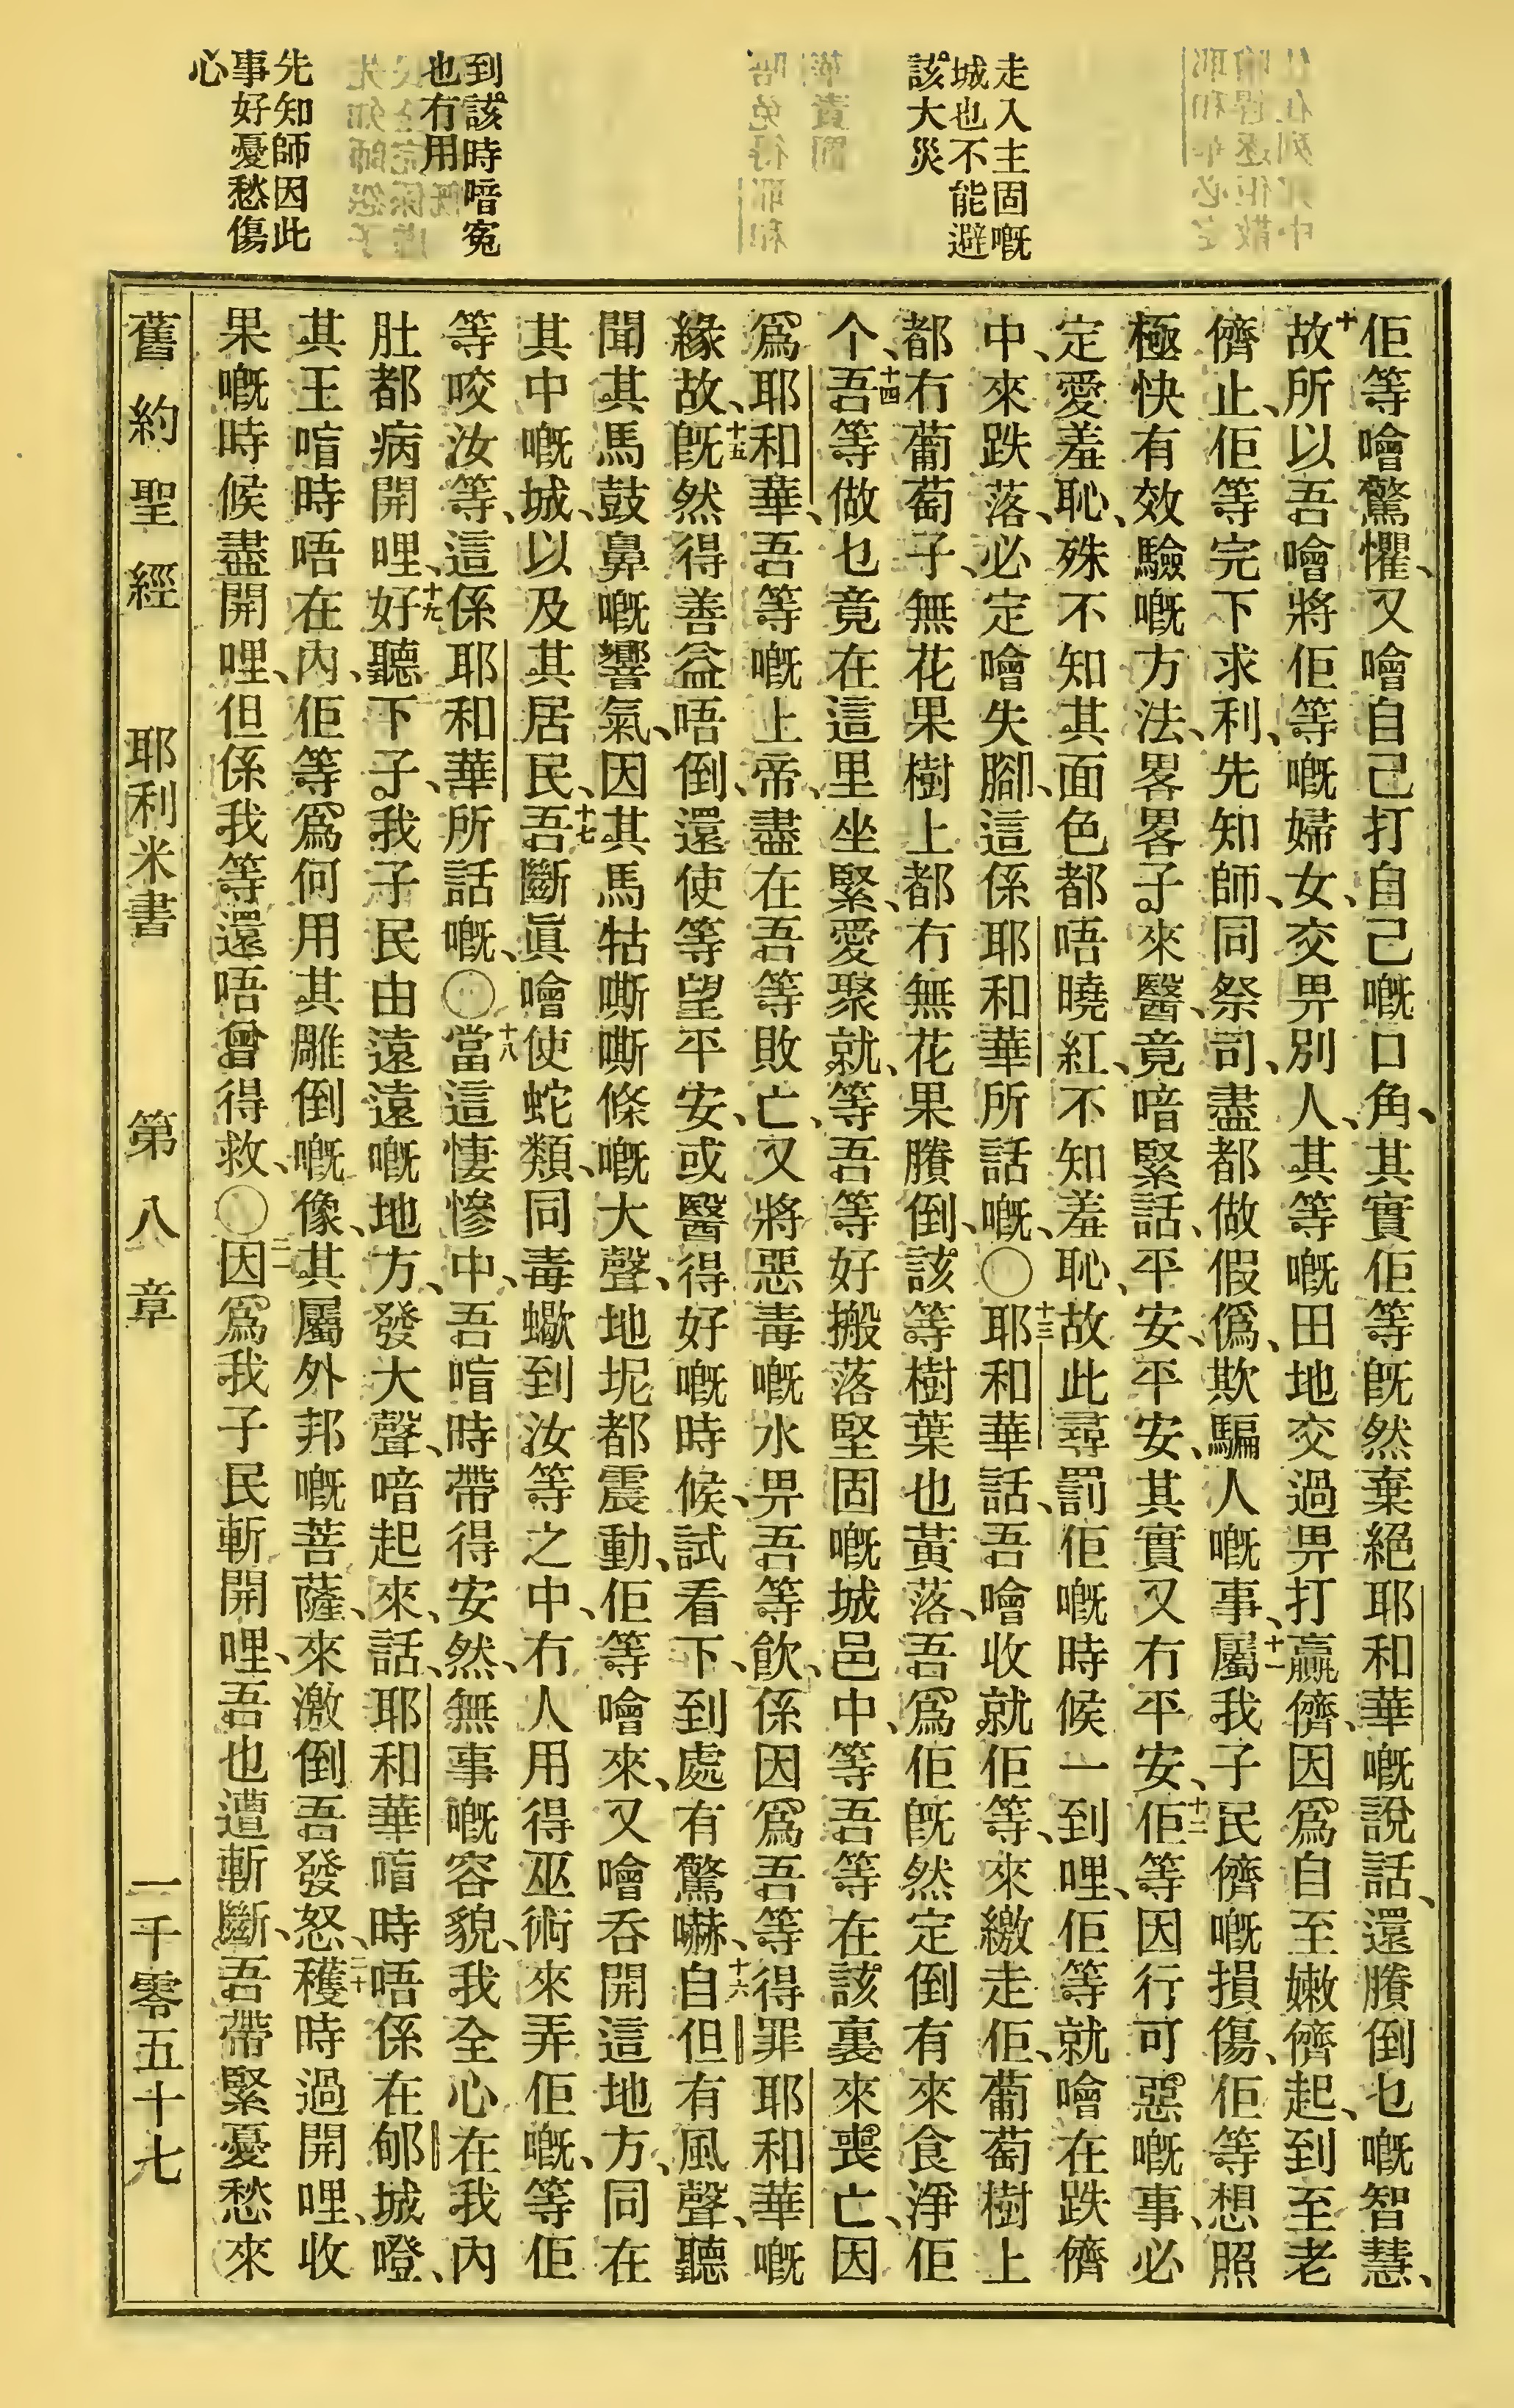 走入主固嘅
城也不能避
該大災
到該時喑寃
也冇用
先知師因此
事好憂愁傷
心
佢等噲驚懼、又噲自己打自己嘅口角、其實佢等旣然棄絕耶和華嘅說話、還賸倒乜嘅智慧、
十故所以吾噲將佢等嘅婦女、交畀別人、其等嘅田地交過畀打贏儕、因爲自至嫩儕起、到至老
儕止、佢等完下求利、先知師、同祭司、盡都做假僞、欺騙人嘅事、十一屬我子民儕嘅損傷、佢等想照
極快有效驗嘅方法、畧畧子來醫、竟喑緊話、平安、平安、其實又冇平安、十二佢等因行可惡嘅事、必
定愛羞恥、殊不知其面色都唔曉紅、不知羞恥、故此尋罰佢嘅時候一到哩、佢等就噲在跌儕
中、來跌落、必定噲失腳、這係耶和華所話嘅、〇十三耶和華話、吾噲收就佢等、來繳走佢、葡萄樹上
都冇葡萄子、無花果樹上都冇無花果賸倒、該等樹葉也黃落、吾爲佢旣然定倒有來食淨佢
个、十四吾等做乜竟在這里坐緊、愛聚就、等吾等好搬落堅固嘅城邑中、等吾等在該裏來喪亡、因
爲耶和華、吾等嘅上帝、盡在吾等敗亡、又將惡毒嘅水畀吾等飲、係因爲吾等得罪耶和華嘅
緣故、十五旣然得善益唔倒、還使等望平安、或醫得好嘅時候、試看下、到處有驚嚇、十六自但有風聲、聽
聞其馬鼓鼻嘅響氣、因其馬牯嘶嘶條嘅大聲、地坭都震動、佢等噲來、又噲吞開這地方、同在
其中嘅城、以及其居民、十七吾斷眞噲使蛇類、同毒蠍到汝等之中、冇人用得巫術來弄佢嘅、等佢
等咬汝等、這係耶和華所話嘅、〇十八當這悽慘中、吾喑時帶得安然、無事嘅容貌、我全心在我內
肚都病開哩、十九好聽下子、我子民由遠遠嘅地方、發大聲、喑起來、話、耶和華喑時唔係在郇城噔、
其王喑時唔在內、佢等爲何用其雕倒嘅像、其屬外邦嘅菩薩、來激倒吾發怒、二十穫時過開哩、收
果嘅時候盡開哩、但係我等還唔曾得救、〇二一因爲我子民斬開哩、吾也遭斬斷、吾帶緊憂愁來
舊約聖經 耶利米書 第八章 一千零五十七